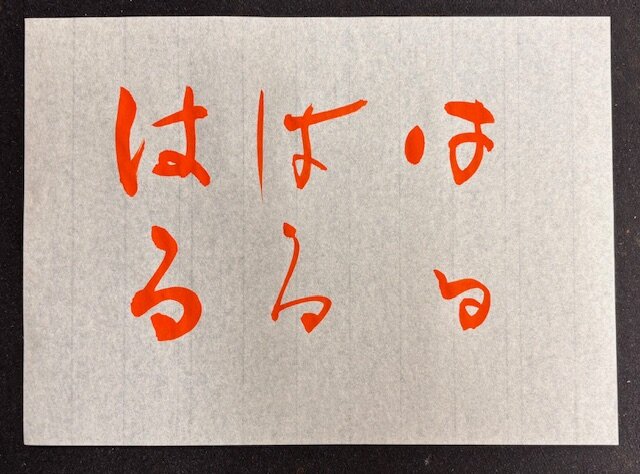 はる
はる
はる